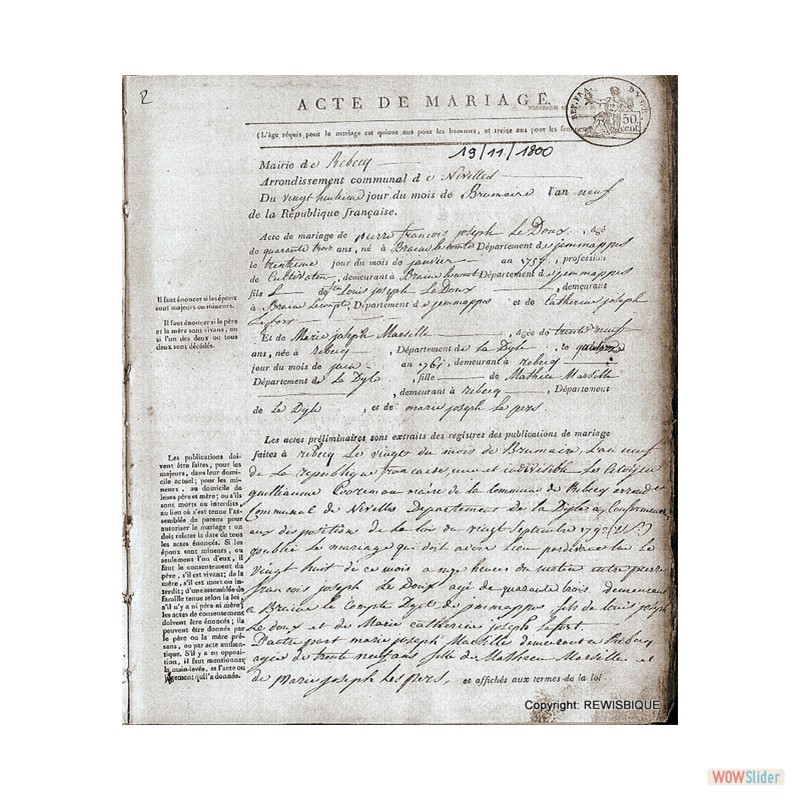 2
ACTE DE MARIAGE.
50 cent.
(L'âge réquis pour le mariage est quinze ans pour les hommes, et treize ans pour les femmes
19/11/1800
Mairie de Rebecq
Arrondissement communal de Nivelles
Du vingt huitieme jour du mois de Brumaire l'an neuf
de la République française.
Acte de mariage de pierre francois joseph Le Doux, agé
de quarante trois ans, né à Braine le comte Département de jemmappes
le trentieme jour du mois de janvier an 1757, profession
de Cultivateur, demeurant à Braine le comte Département de jemmappes
fils de Louis joseph Le Doux, demeurant
à Braine Lecompte, Département de jemmappes et de Catherine joseph
Lefort
Et de Marie joseph Marsille, agée de trente neuf
ans, née à rebecq, Département de La Dyle, le quatorze
jour du mois de juin an 1761, demeurant à rebecq
Département de La Dyle, fille de Mathieu Marsille
, demeurant à rebecq, Département
de La Dyle, et de marie joseph Le pers
Les actes préliminaires sont extraits des registres des publications de mariage
faites à rebecq Le vingt du mois de Brumaire, L'an neuf
de La republique francaise, une et indivisible Le Citoyen
guilliaume maire de La Commune de Rebecq
Communal de Nivelles Departement de La Dyle a Conformement
aux disposition de La Loi du vingt Septembre 1792
publié Le mariage qui doit avoir Lieu Le
vingt huit de ce mois a onze heures du matin entre pierre
francois joseph Le Doux agé de quarante trois demeurant
a Braine le Compte Dept de jemmappes fils de Louis joseph
Le doux et de Marie catherine joseph Lefort
D'autre part marie joseph Marsille demeurant a Rebecq
agée de trente neuf ans fille de Mathieu Marsille et
de Marie joseph Les pers, et affichés aux termes de la loi
Il faut énoncer si les époux
sont majeurs ou mineurs.
Il faut énoncer si le père
et la mère sont vivans, ou
si l'un des deux ou tous
deux sont décédés.
Les publications doi-
vent être faites, pour les
majeurs, dans leur domi-
cile actuel; pour les mi-
neurs, au domicile de
leurs père et mère; ou s'ils
sont morts ou interdits,
au lieu où s'est tenue l'as-
semblée de parens pour
autoriser le mariage: on
doit relater la date de tous
les actes énoncés. Si les
époux sont mineurs, ou
seulement l'un d'eux, il
faut le consentement du
père, s'il est vivant; de la
mère, s'il est mort ou in-
terdit; d'une assemblée de
famille tenue selon la loi,
s'il n'y a ni père ni mère;
les actes de consentement
doivent être énoncés; ils
peuvent être donnés par
le père ou la mère pré-
sens, ou par acte authen-
tique. S'il y a en opposi-
tion, il faut mentionner
la main-levée, et l'acte ou
jugement qui l'a donnée.
Copyright: REWISBIQUE
WOWSlider